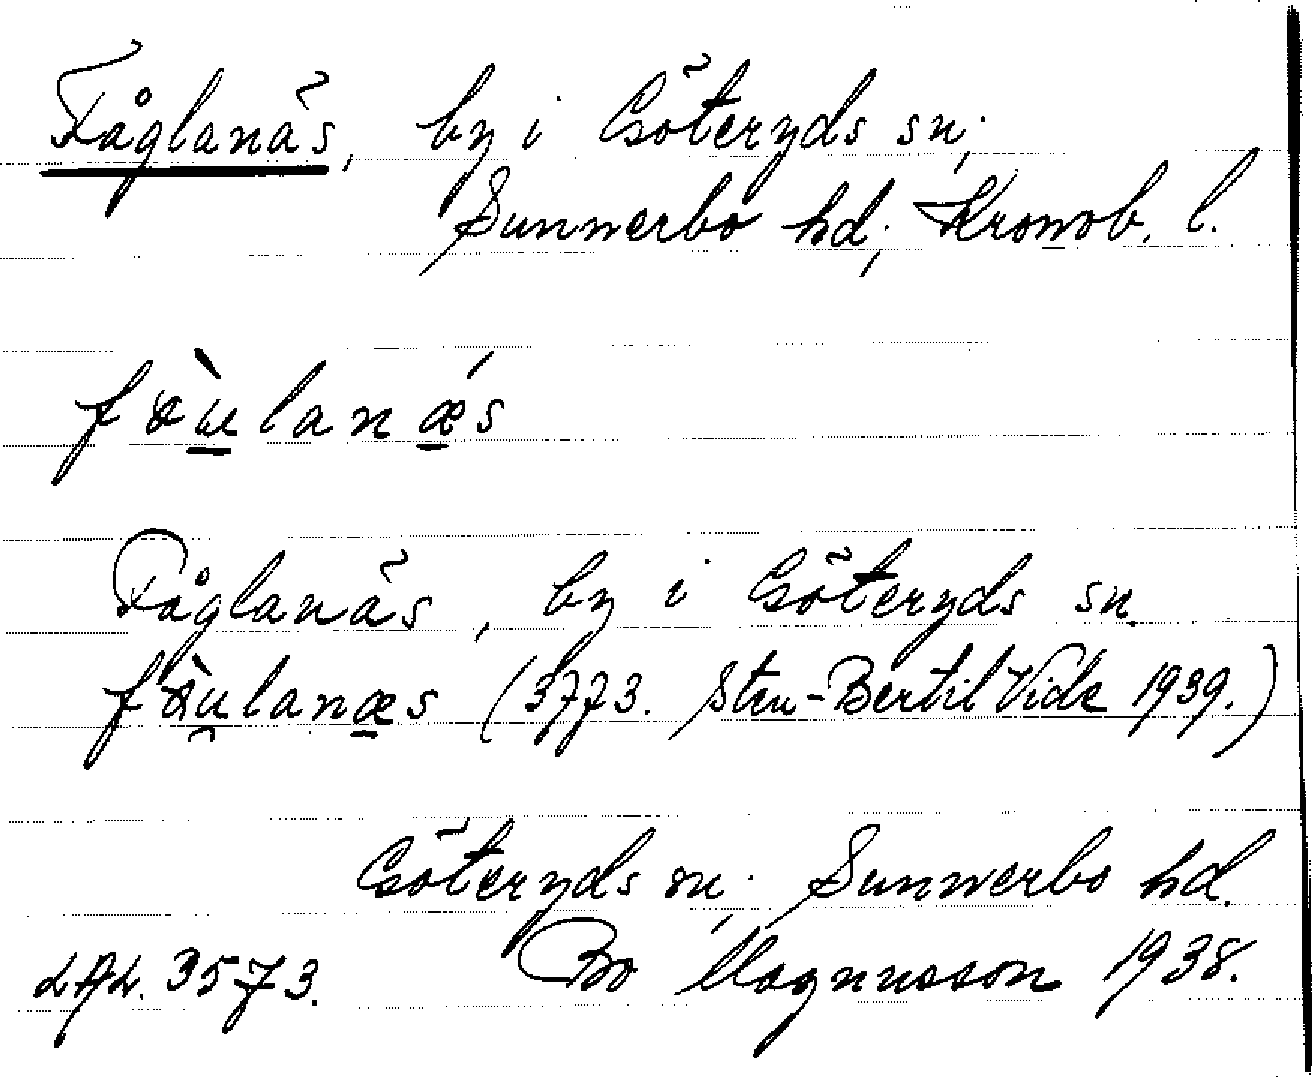 Fåglanäs, by i Göteryds sn;
Sunnerbo hd; Kronob. l.
fɑ̀u̱lanǽ̱s
Fåglanäs, by i Göteryds sn.
fɑ̀u̯lanæ̱s (3773. Sten-Bertil Vide 1939.)
Göteryds sn; Sunnerbo hd.
LAL. 3573. Bo Magnusson 1938.